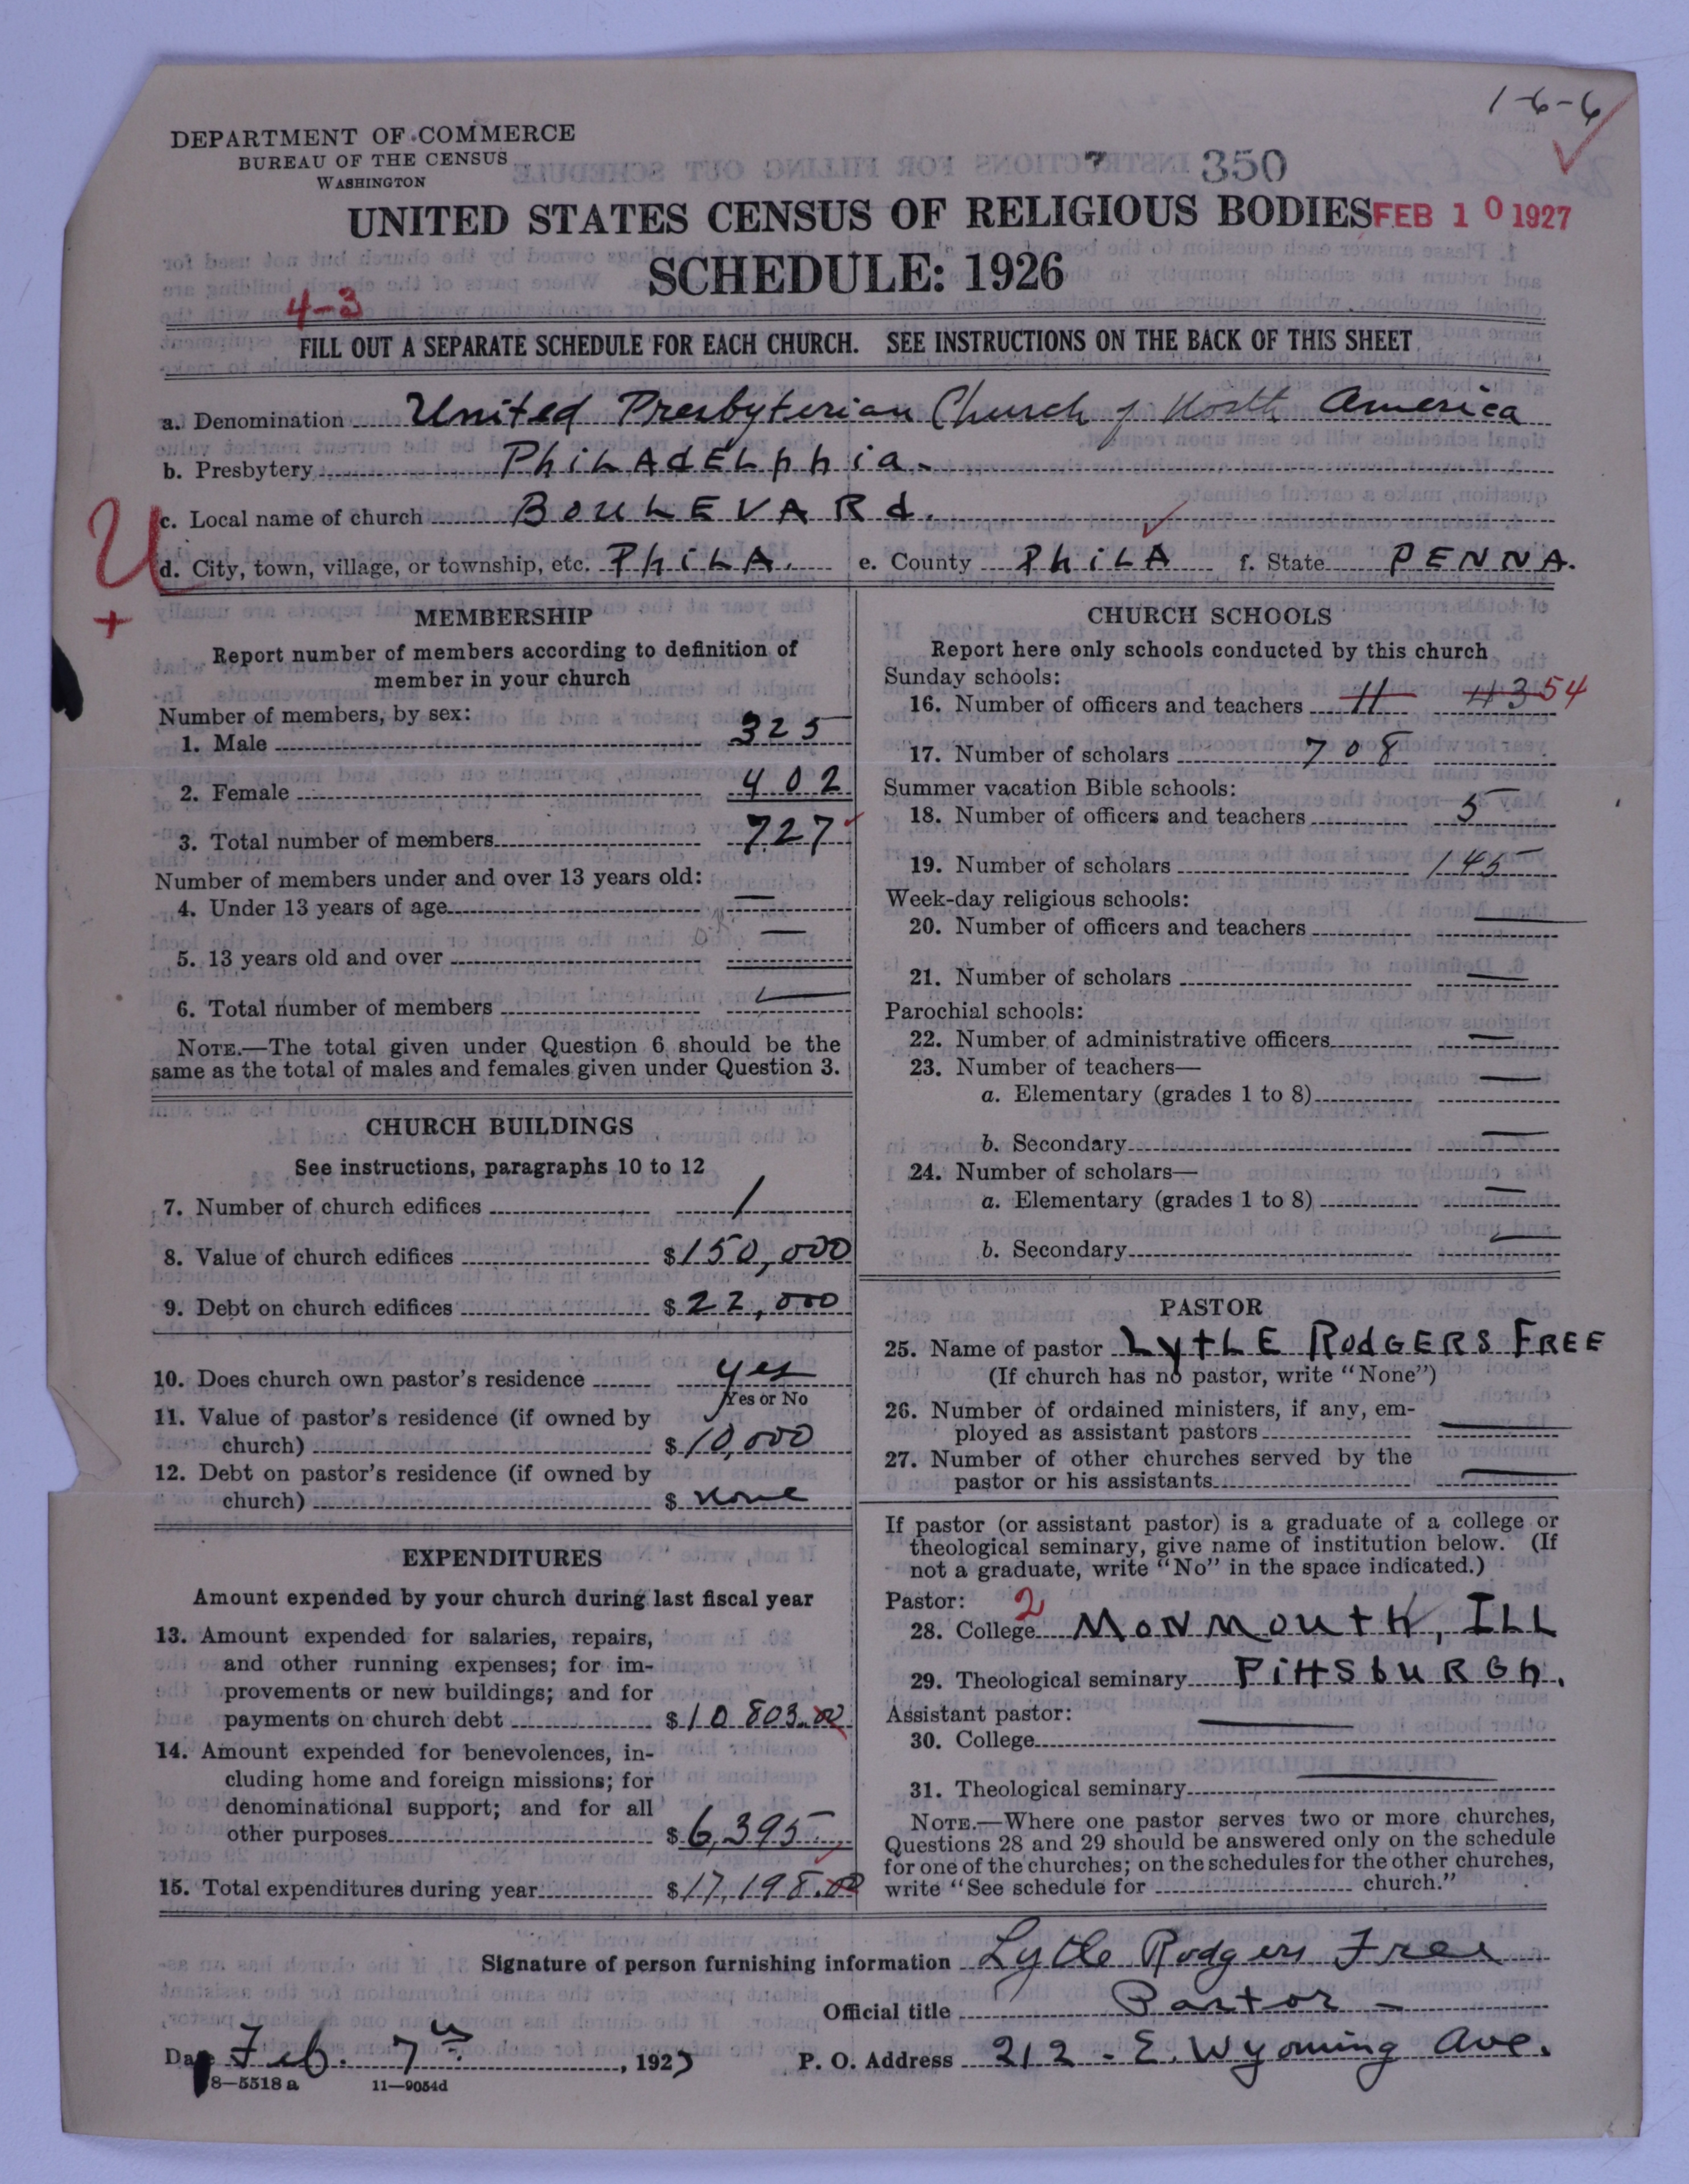 1-6-6
DEPARTMENT OF COMMERCE
BUREAU OF THE CENSUS
WASHINGTON
350
UNITED STATES CENSUS OF RELIGIOUS BODIES
FEB 10 1927
SCHEDULE: 1926
4-3
FILL OUT A SEPARATE SCHEDULE FOR EACH CHURCH. SEE INSTRUCTIONS ON THE BACK OF THIS SHEET
a. Denomination United Presbyterian Church of North America
b. Presbytery PhiLAdELphia.
c. Local name of church BOULEVARd.
d. City, town, village, or township, etc. PhiLA. e. County PhiLA f. State PENNA.
U
+
MEMBERSHIP
Report number of members according to definition of
member in your church
Number of members, by sex:
1. Male 325
2. Female 402
3. Total number of members 727
Number of members under and over 13 years old:
4. Under 13 years of age —
5. 13 years old and over —
6. Total number of members —
NOTE.—The total given under Question 6 should be the
same as the total of males and females given under Question 3.
CHURCH BUILDINGS
See instructions, paragraphs 10 to 12
7. Number of church edifices 1
8. Value of church edifices $150,000
9. Debt on church edifices $22,000
10. Does church own pastor's residence yes
Yes or No
11. Value of pastor's residence (if owned by
church) $10,000
12. Debt on pastor's residence (if owned by
church) $ none
EXPENDITURES
Amount expended by your church during last fiscal year
13. Amount expended for salaries, repairs,
and other running expenses; for im-
provements or new buildings; and for
payments on church debt $10803.00
14. Amount expended for benevolences, in-
cluding home and foreign missions; for
denominational support; and for all
other purposes $6,395
15. Total expenditures during year $17,198.00
CHURCH SCHOOLS
Report here only schools conducted by this church
Sunday schools:
16. Number of officers and teachers 11 43 54
17. Number of scholars 708
Summer vacation Bible schools:
18. Number of officers and teachers 5
19. Number of scholars 145
Week-day religious schools:
20. Number of officers and teachers —
21. Number of scholars —
Parochial schools:
22. Number of administrative officers —
23. Number of teachers—
a. Elementary (grades 1 to 8) —
b. Secondary —
24. Number of scholars—
a. Elementary (grades 1 to 8) —
b. Secondary —
PASTOR
25. Name of pastor LytLE RodGERS FREE
(If church has no pastor, write "None")
26. Number of ordained ministers, if any, em-
ployed as assistant pastors —
27. Number of other churches served by the
pastor or his assistants —
If pastor (or assistant pastor) is a graduate of a college or
theological seminary, give name of institution below. (If
not a graduate, write "No" in the space indicated.)
Pastor: 2
28. College MoNMouth, ILL
29. Theological seminary PittSbuRGh.
Assistant pastor:
30. College —
31. Theological seminary —
NOTE.—Where one pastor serves two or more churches,
Questions 28 and 29 should be answered only on the schedule
for one of the churches; on the schedules for the other churches,
write "See schedule for church."
Signature of person furnishing information Lytle Rodgers Free
Official title Pastor -
Date Feb. 7th, 1927 P. O. Address 212 - E. Wyoming Ave.
8-5518 a 11-9054d